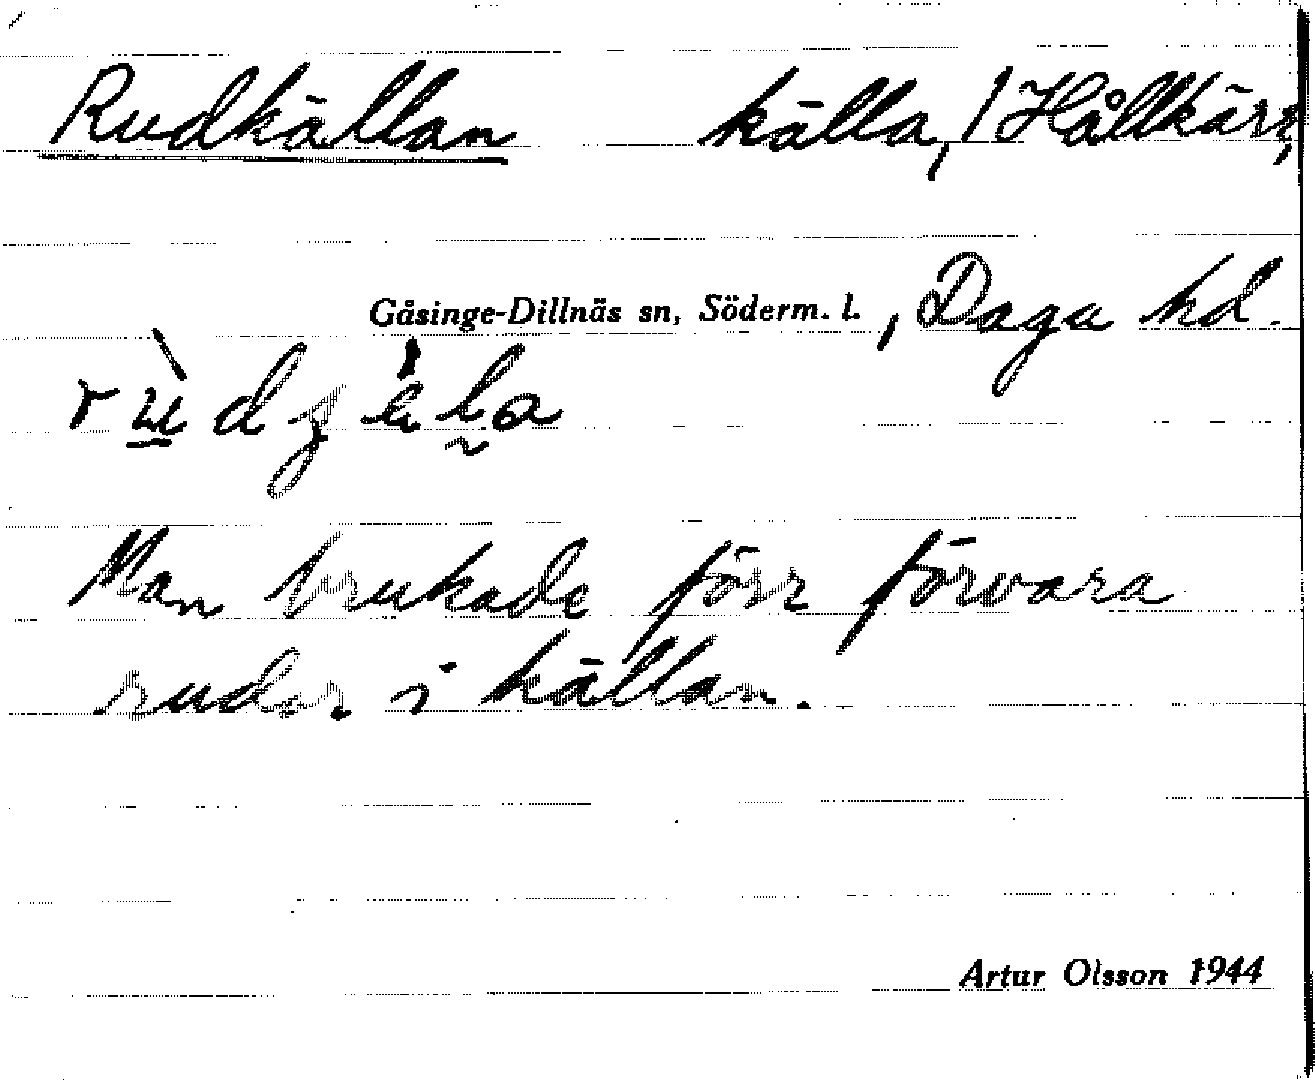 Rudkällan källa, /Hållkärr,
Gåsinge-Dillnäs sn, Söderm. l., Daga hd.
Man brukade förr förvara
rudor i källan.
Artur Olsson 1944